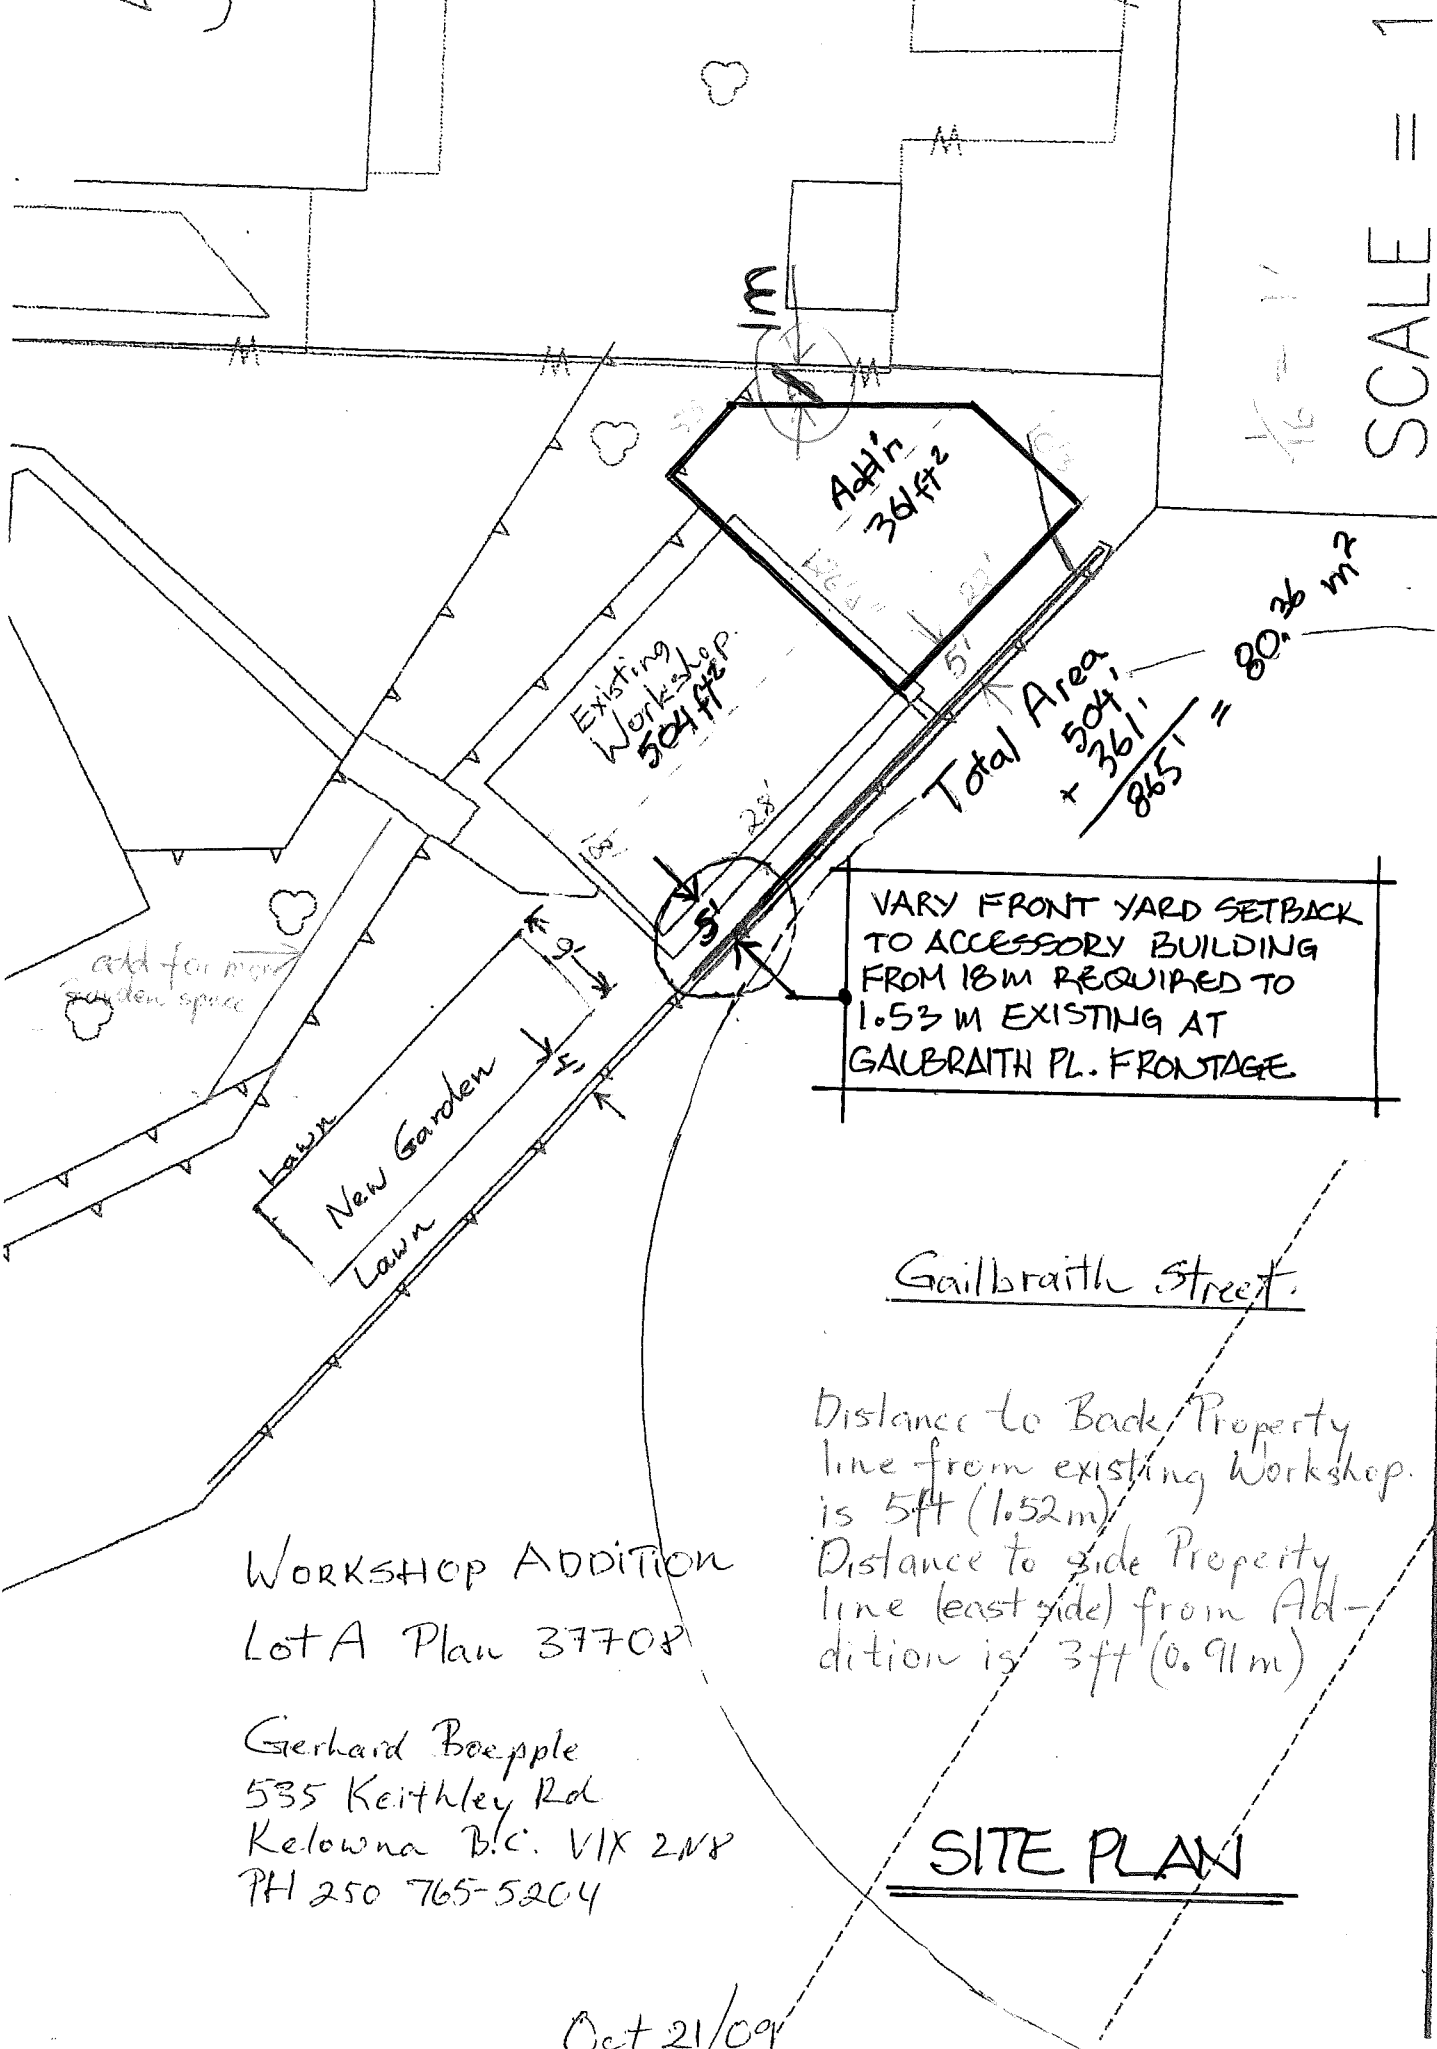 SCALE = 1
1m
Add'n
361 ft²
22'
5'
Existing
Workshop.
504 ft²
28'
Total Area
504'
+ 361'
865' = 80.36 m²
5'
VARY FRONT YARD SETBACK
TO ACCESSORY BUILDING
FROM 18M REQUIRED TO
1.53 M EXISTING AT
GALBRAITH PL. FRONTAGE
add for more
garden space
9'
Lawn
New Garden
Lawn
Gailbraith Street.
Distance to Back Property
line from existing Workshop.
is 5ft (1.52m)
Distance to side Property
line (east side) from Ad-
dition is 3ft (0.91m)
WORKSHOP ADDITION
Lot A Plan 37708
Gerhard Boepple
535 Keithley Rd
Kelowna B.C. V1X 2N8
PH 250 765-5204
SITE PLAN
Oct 21/09